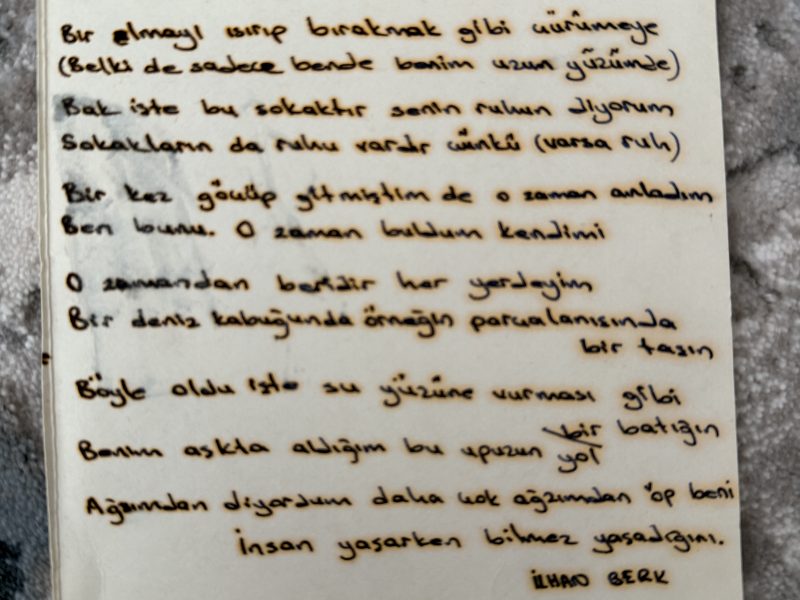 Bir elmayı ısırıp bırakmak gibi çürümeye
(Belki de sadece bende benim uzun yüzümde)
Bak işte bu sokaktır senin ruhun diyorum
Sokakların da ruhu vardır çünkü (varsa ruh)
Bir kez göçüp gitmiştim de o zaman anladım
Ben bunu. O zaman buldum kendimi
O zamandan beridir her yerdeyim
Bir deniz kabuğunda örneğin parçalanışında
bir taşın
Böyle oldu işte su yüzüne vurması gibi
bir batığın
Benim aşkta aldığım bu upuzun yol
Ağzımdan diyordum daha çok ağzımdan öp beni
İnsan yaşarken bilmez yaşadığını.
İLHAN BERK